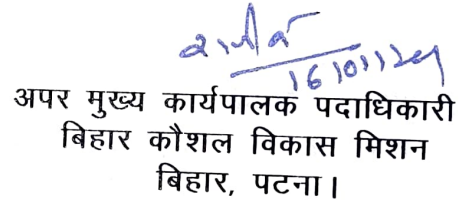 राजीव
16/01/24
अपर मुख्य कार्यपालक पदाधिकारी
बिहार कौशल विकास मिशन
बिहार, पटना।